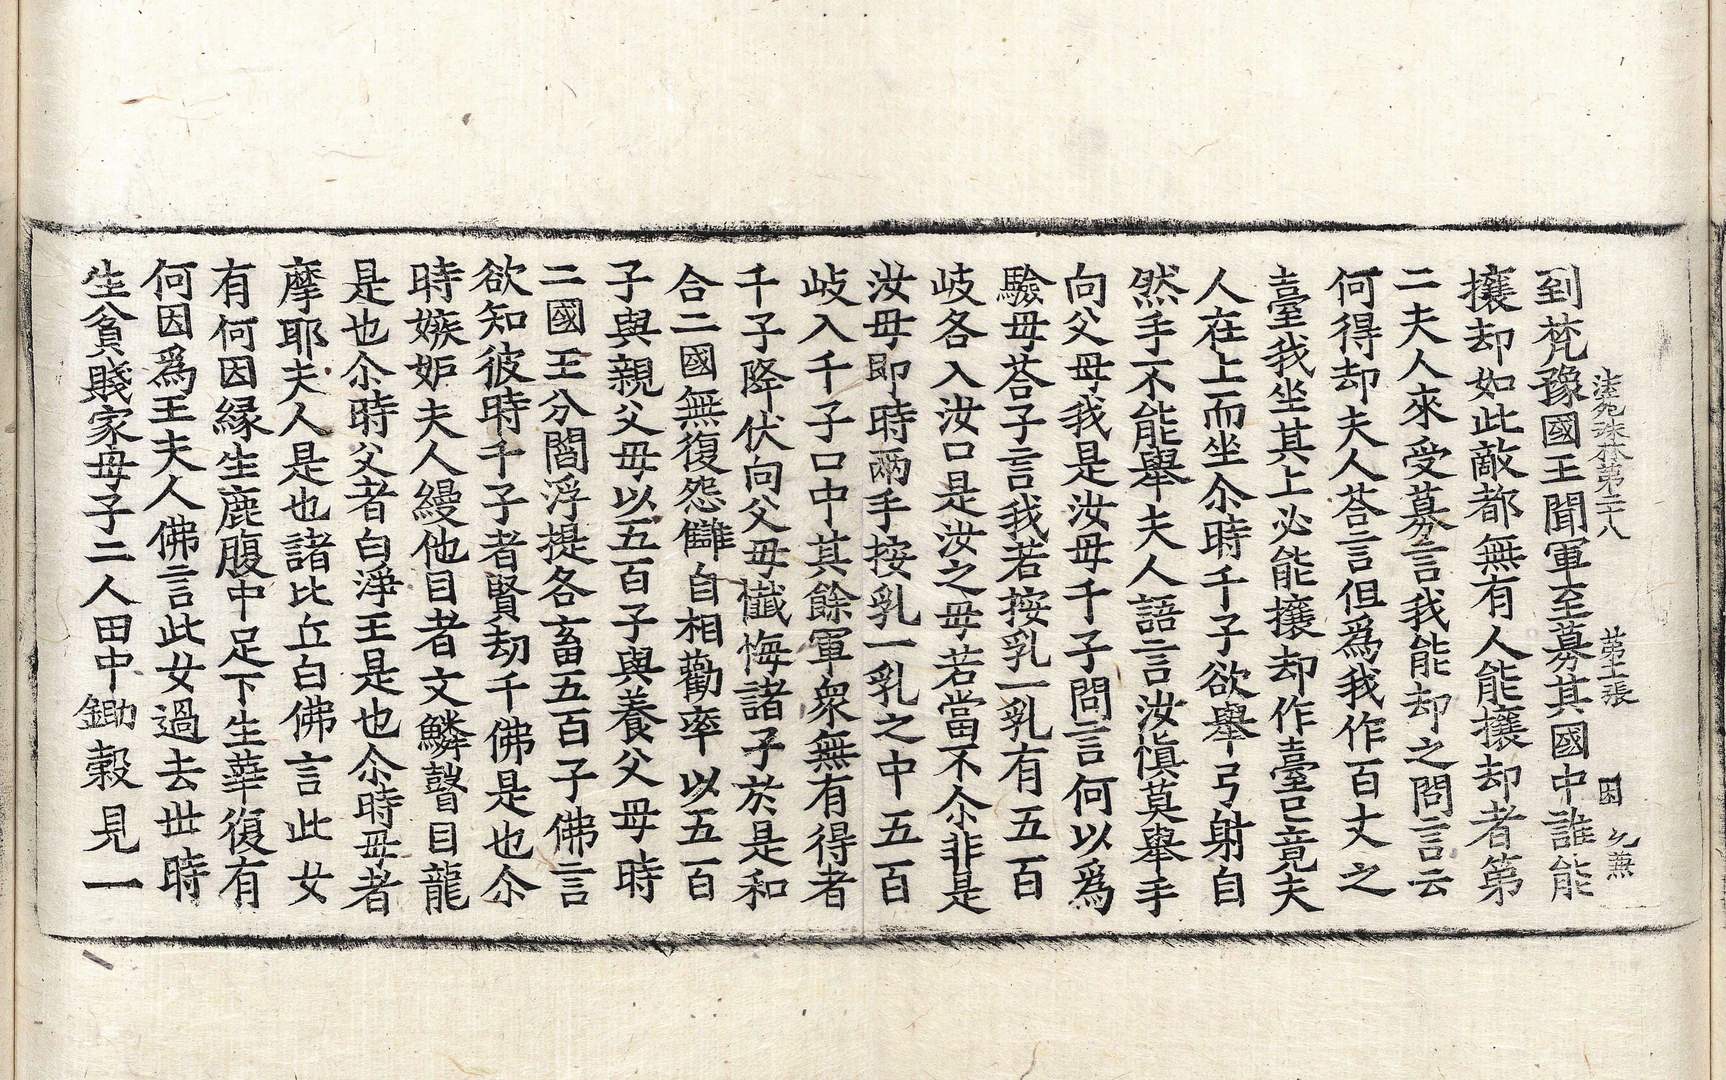 法苑珠林第二十八　第十一張　困　允蕪
到梵豫國王聞軍至募其國中誰能
攘却如此敵都無有人能攘却者第
二夫人來受募言我能却之問言云
何得却夫人荅言但爲我作百丈之
臺我坐其上必能攘却作臺已竟夫
人在上而坐尒時千子欲舉弓射自
然手不能舉夫人語言汝愼莫舉手
向父母我是汝母千子問言何以爲
驗母荅子言我若按乳一乳有五百
歧各入汝口是汝之母若當不尒非是
汝母即時兩手按乳一乳之中五百
歧入千子口中其餘軍衆無有得者
千子降伏向父母懺悔諸子於是和
合二國無復怨讎自相勸率以五百
子與親父母以五百子與養父母時
二國王分閻浮提各畜五百子佛言
欲知彼時千子者賢劫千佛是也尒
時嫉妬夫人縵他目者文鱗瞽目龍
是也尒時父者白淨王是也尒時母者
摩耶夫人是也諸比丘白佛言此女
有何因緣生鹿腹中足下生華復有
何因爲王夫人佛言此女過去世時
生貧賤家母子二人田中鋤穀見一